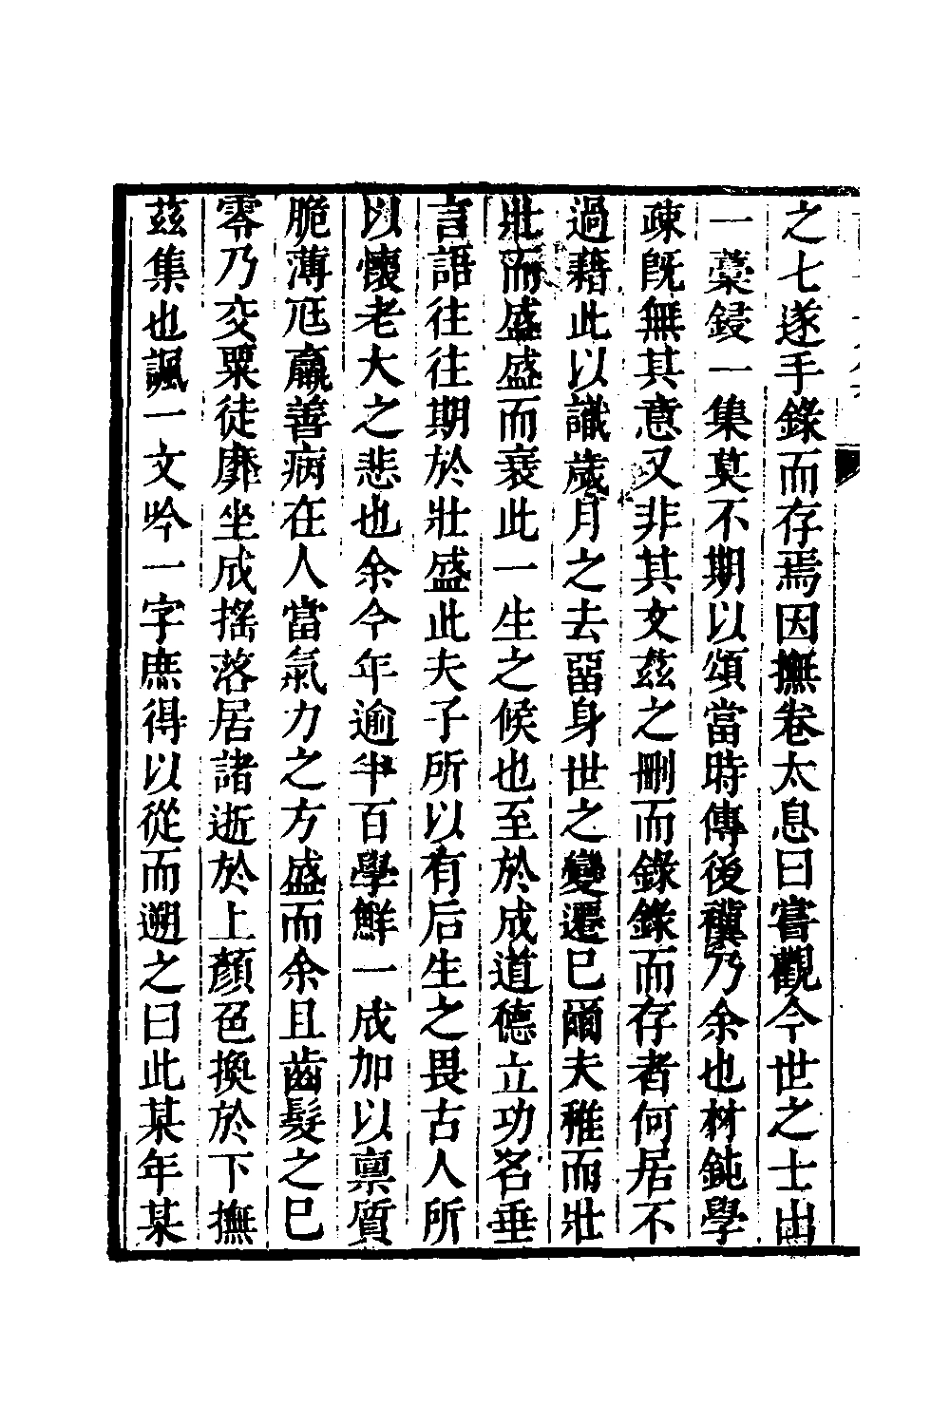 之七遂手錄而存焉因撫卷太息曰嘗觀今世之士出
一藁鋟一集莫不期以頌當時傳後禩乃余也材鈍學
疎旣無其意又非其文茲之刪而錄錄而存者何居不
過藉此以識歲月之去畱身世之變遷已爾夫稚而壯
壯而盛盛而衰此一生之候也至於成道德立功名垂
言語往往期於壯盛此夫子所以有后生之畏古人所
以懷老大之悲也余今年逾半百學鮮一成加以禀質
脆薄尫羸善病在人當氣力之方盛而余且齒髮之已
零乃交粟徒靡坐成搖落居諸逝於上顏色換於下撫
茲集也諷一文吟一字庶得以從而遡之曰此某年某